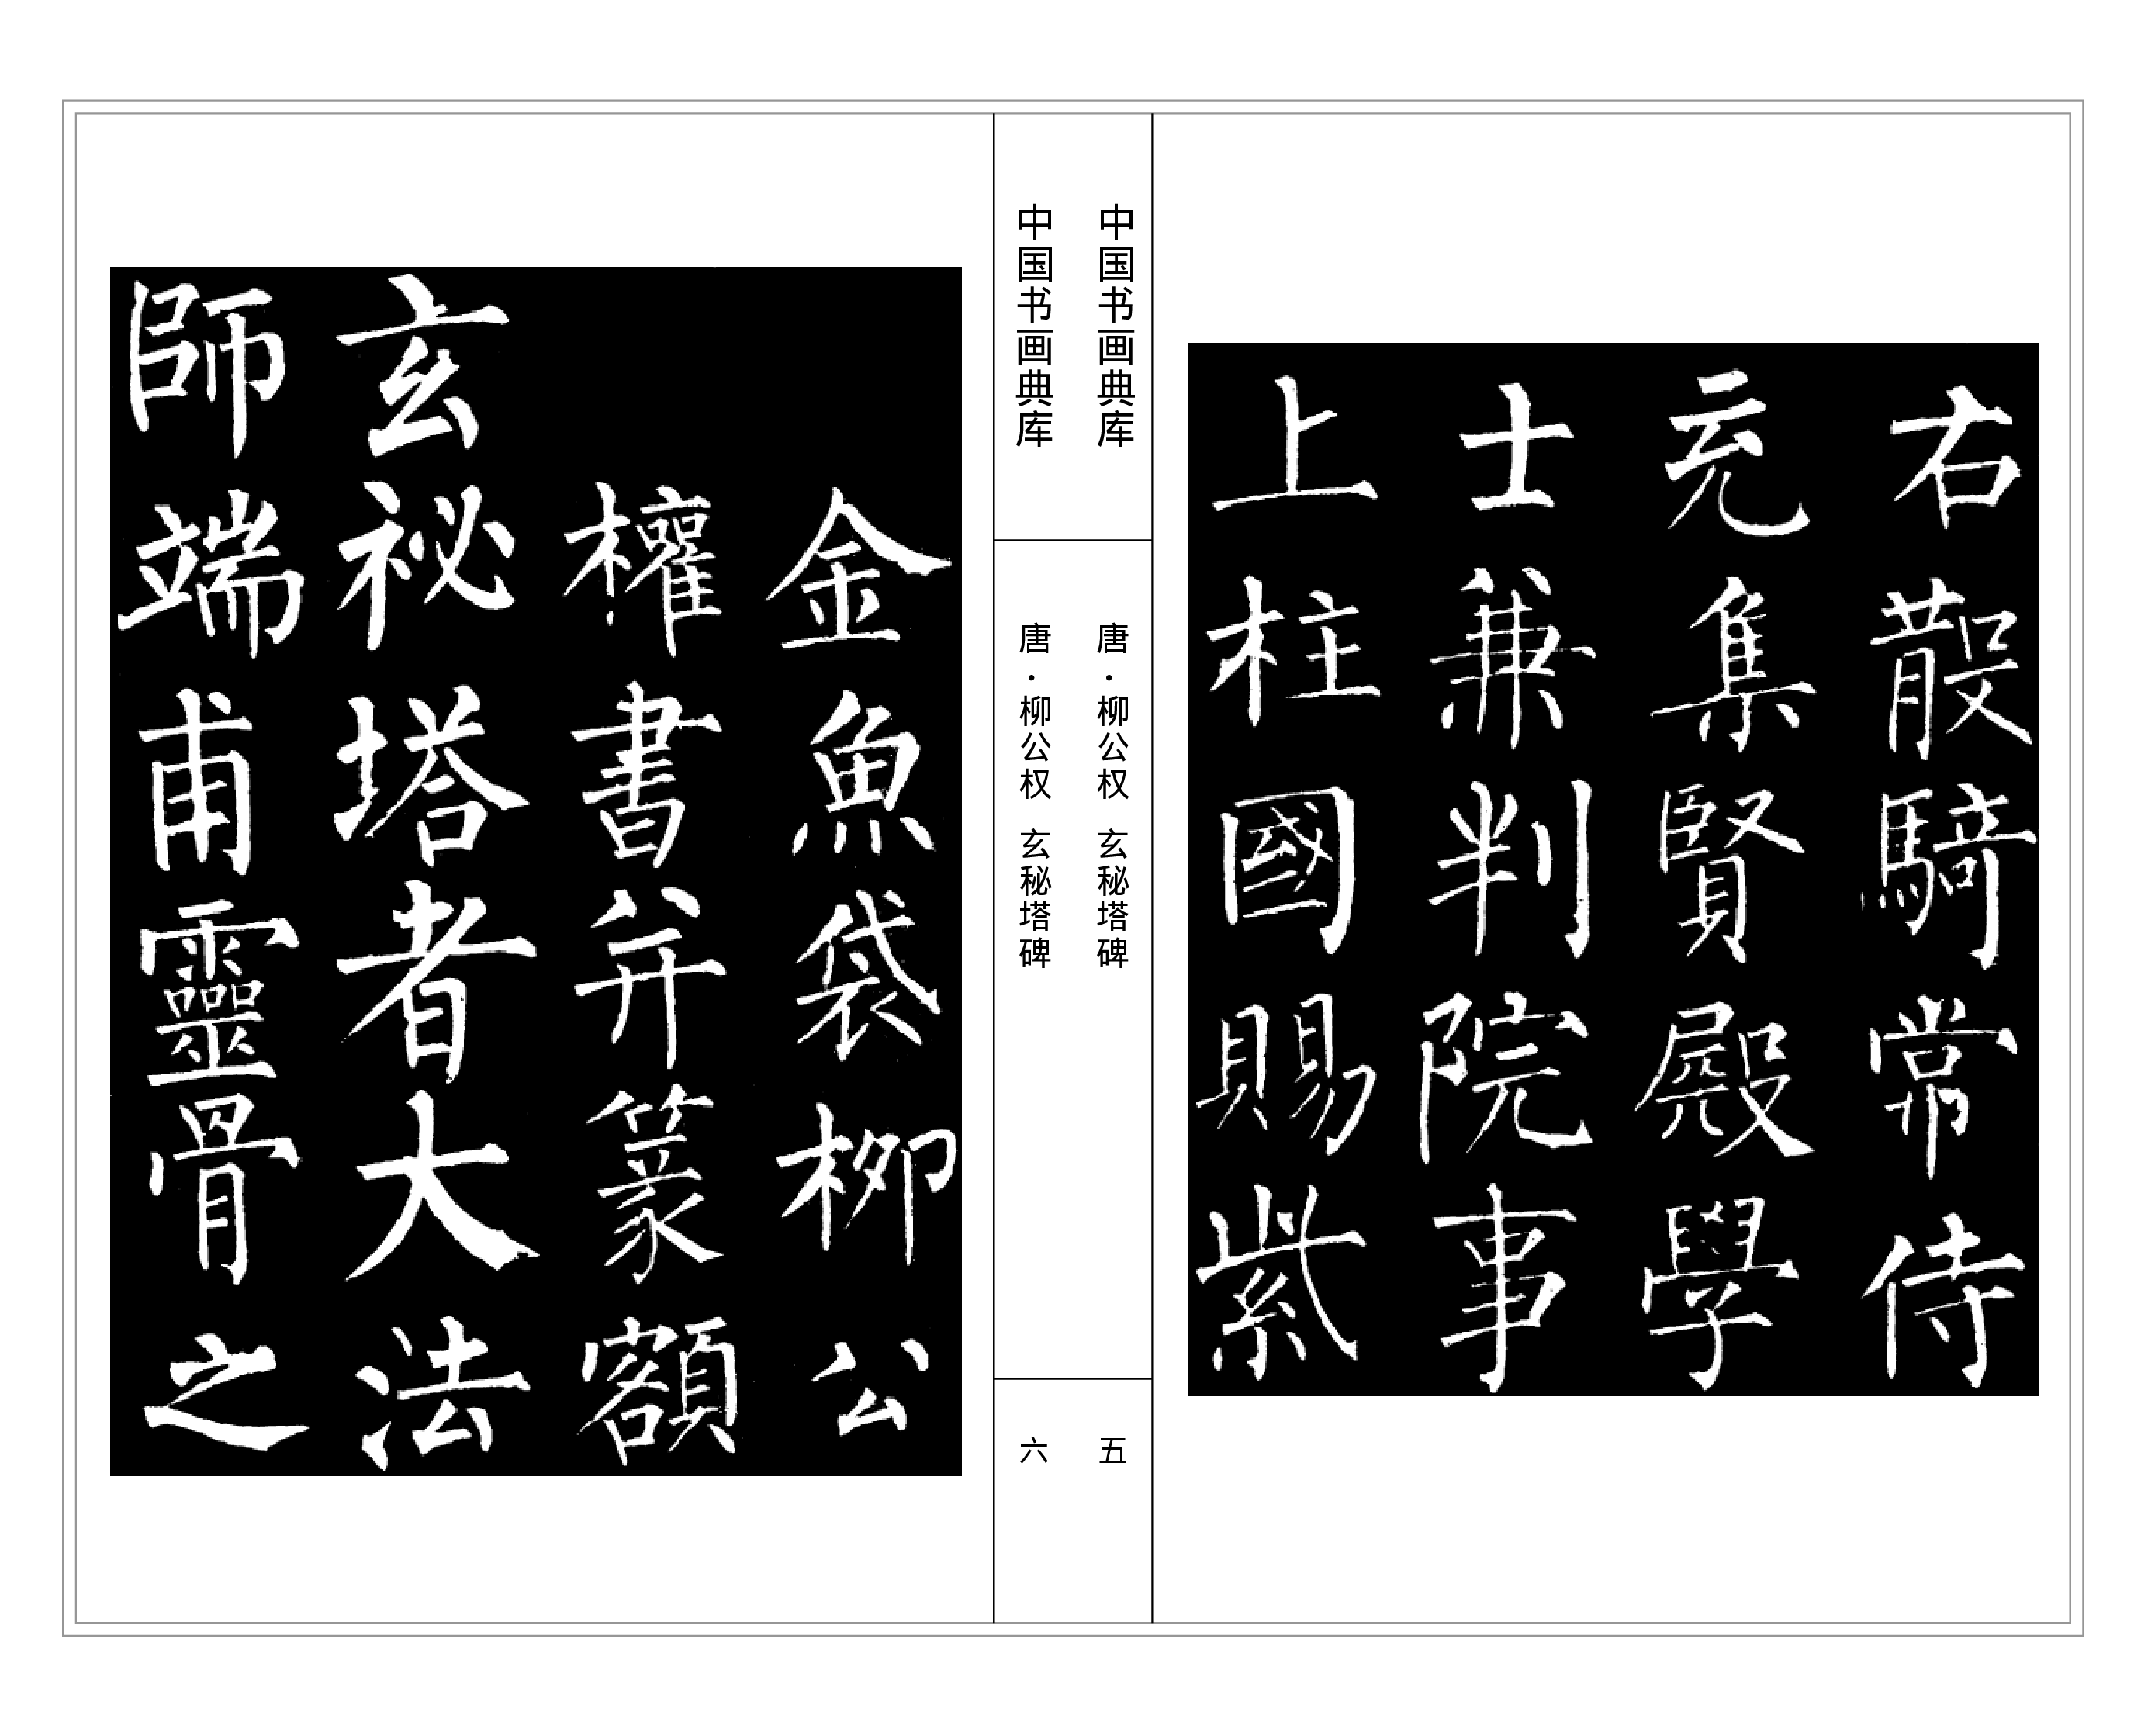 右散騎常侍
充集賢殿學
士兼判院事
上柱國賜紫
中国书画典库
唐·柳公权 玄秘塔碑
五
中国书画典库
唐·柳公权 玄秘塔碑
六
金魚袋柳公
權書并篆額
玄祕塔者大法
師端甫靈骨之